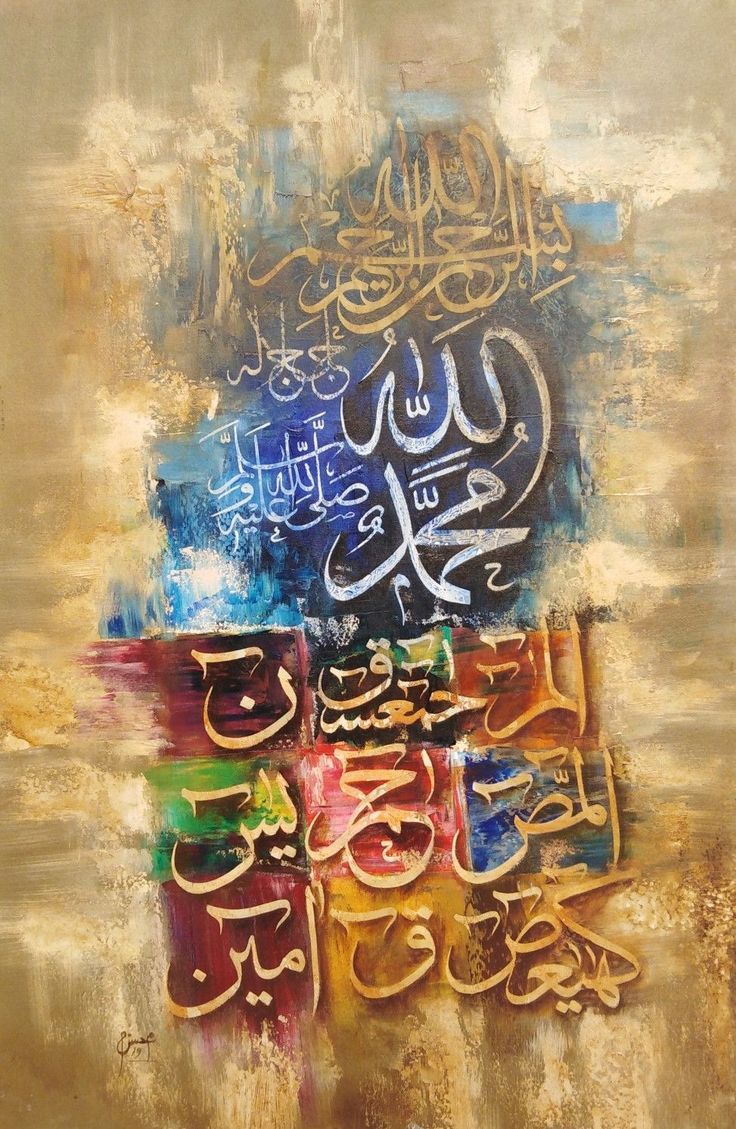 بسم الله الرحمن الرحيم
الله جل جلاله
محمد صلى الله عليه وسلم
المر حمعسق ن
المص الر حم يس
كهيعص ق امين